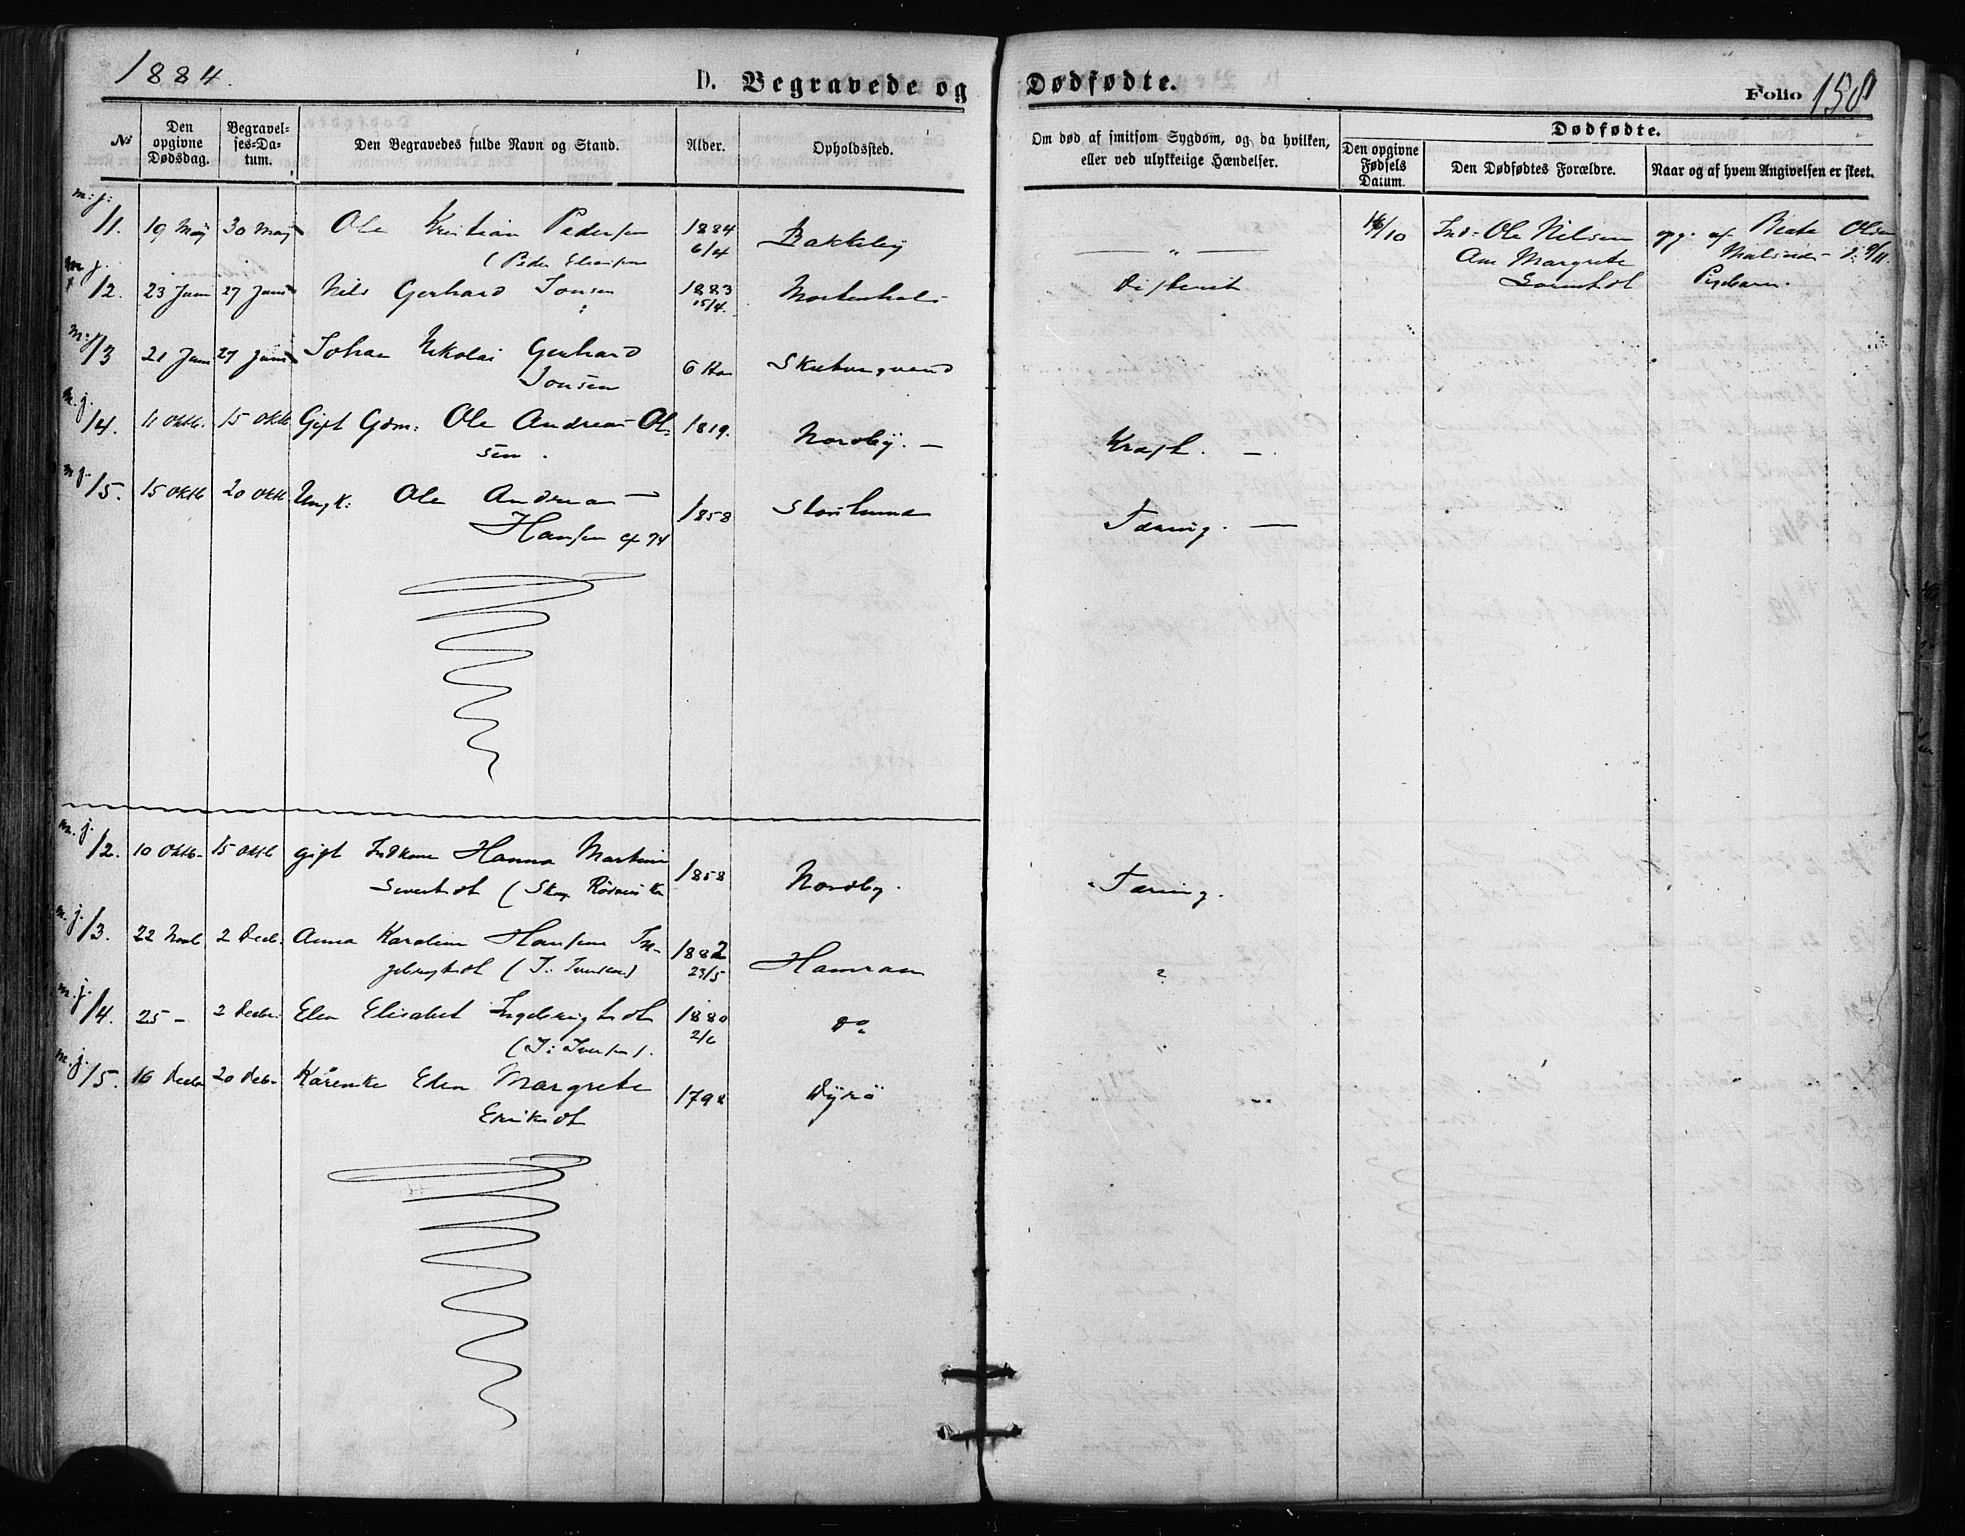 1884.
D. Begravede og Dødfødte.
Folio 158
№
Den opgivne Dødsdag.
Begravel-
ses-Da-
tum.
Den Begravedes fulde Navn og Stand.
Alder.
Opholdssted.
Om død af smitsom Sygdom, og da hvilken,
eller ved ulykkelige Hændelser.
Dødfødte.
Den opgivne
Fødsels
Datum.
Den Dødfødtes Forældre.
Naar og af hvem Angivelsen er skeet.
m. j.
11. 19 Maj 30 Maj Ole Kristian Pedersen 1884 6/4 Bakkeby — „ — 16/10 Ind. Ole Nilsen opg. af Beate Olsen
(Peder
Ane Margrete
9/11.
m. j.
12. 23 Juni 27 Juni Nils Gerhard Jonsen 1883 15/4. Mortenhals Difterit Pigebarn.
m. j.
13 21 Juni 27 Juni Johan Nikolai Gerhard 6
Jonsen
m. j.
14. 11 Oktb. 15 Oktb Gift Gdm: Ole Andreas Ol- 1819. Nordby. — Kræft. —
sen.
m. j.
15. 15 Oktb 20 Oktb Ungk: Ole Andreas 1858 Tæring. —
Hansen
m. j.
12. 10 Oktb. 15 Oktb gift Indkone Hanna Martine 1858 Nordby. Tæring.
Sivertsdt
m. j.
13. 22 Novb 2 Decb. Anna Karoline Hansine In- 1882 23/5 Hamran „
gebrigtsdt (I. Iversen)
m. j.
14. 25 – 2 Decbr. Elen Elisabet Ingebrigtsdt 1880 2/6 do
(I: Iversen).
m. j.
15. 16 Decbr 20 Decb. Kårenke Elen Margrete Dyrø
Eriksdt